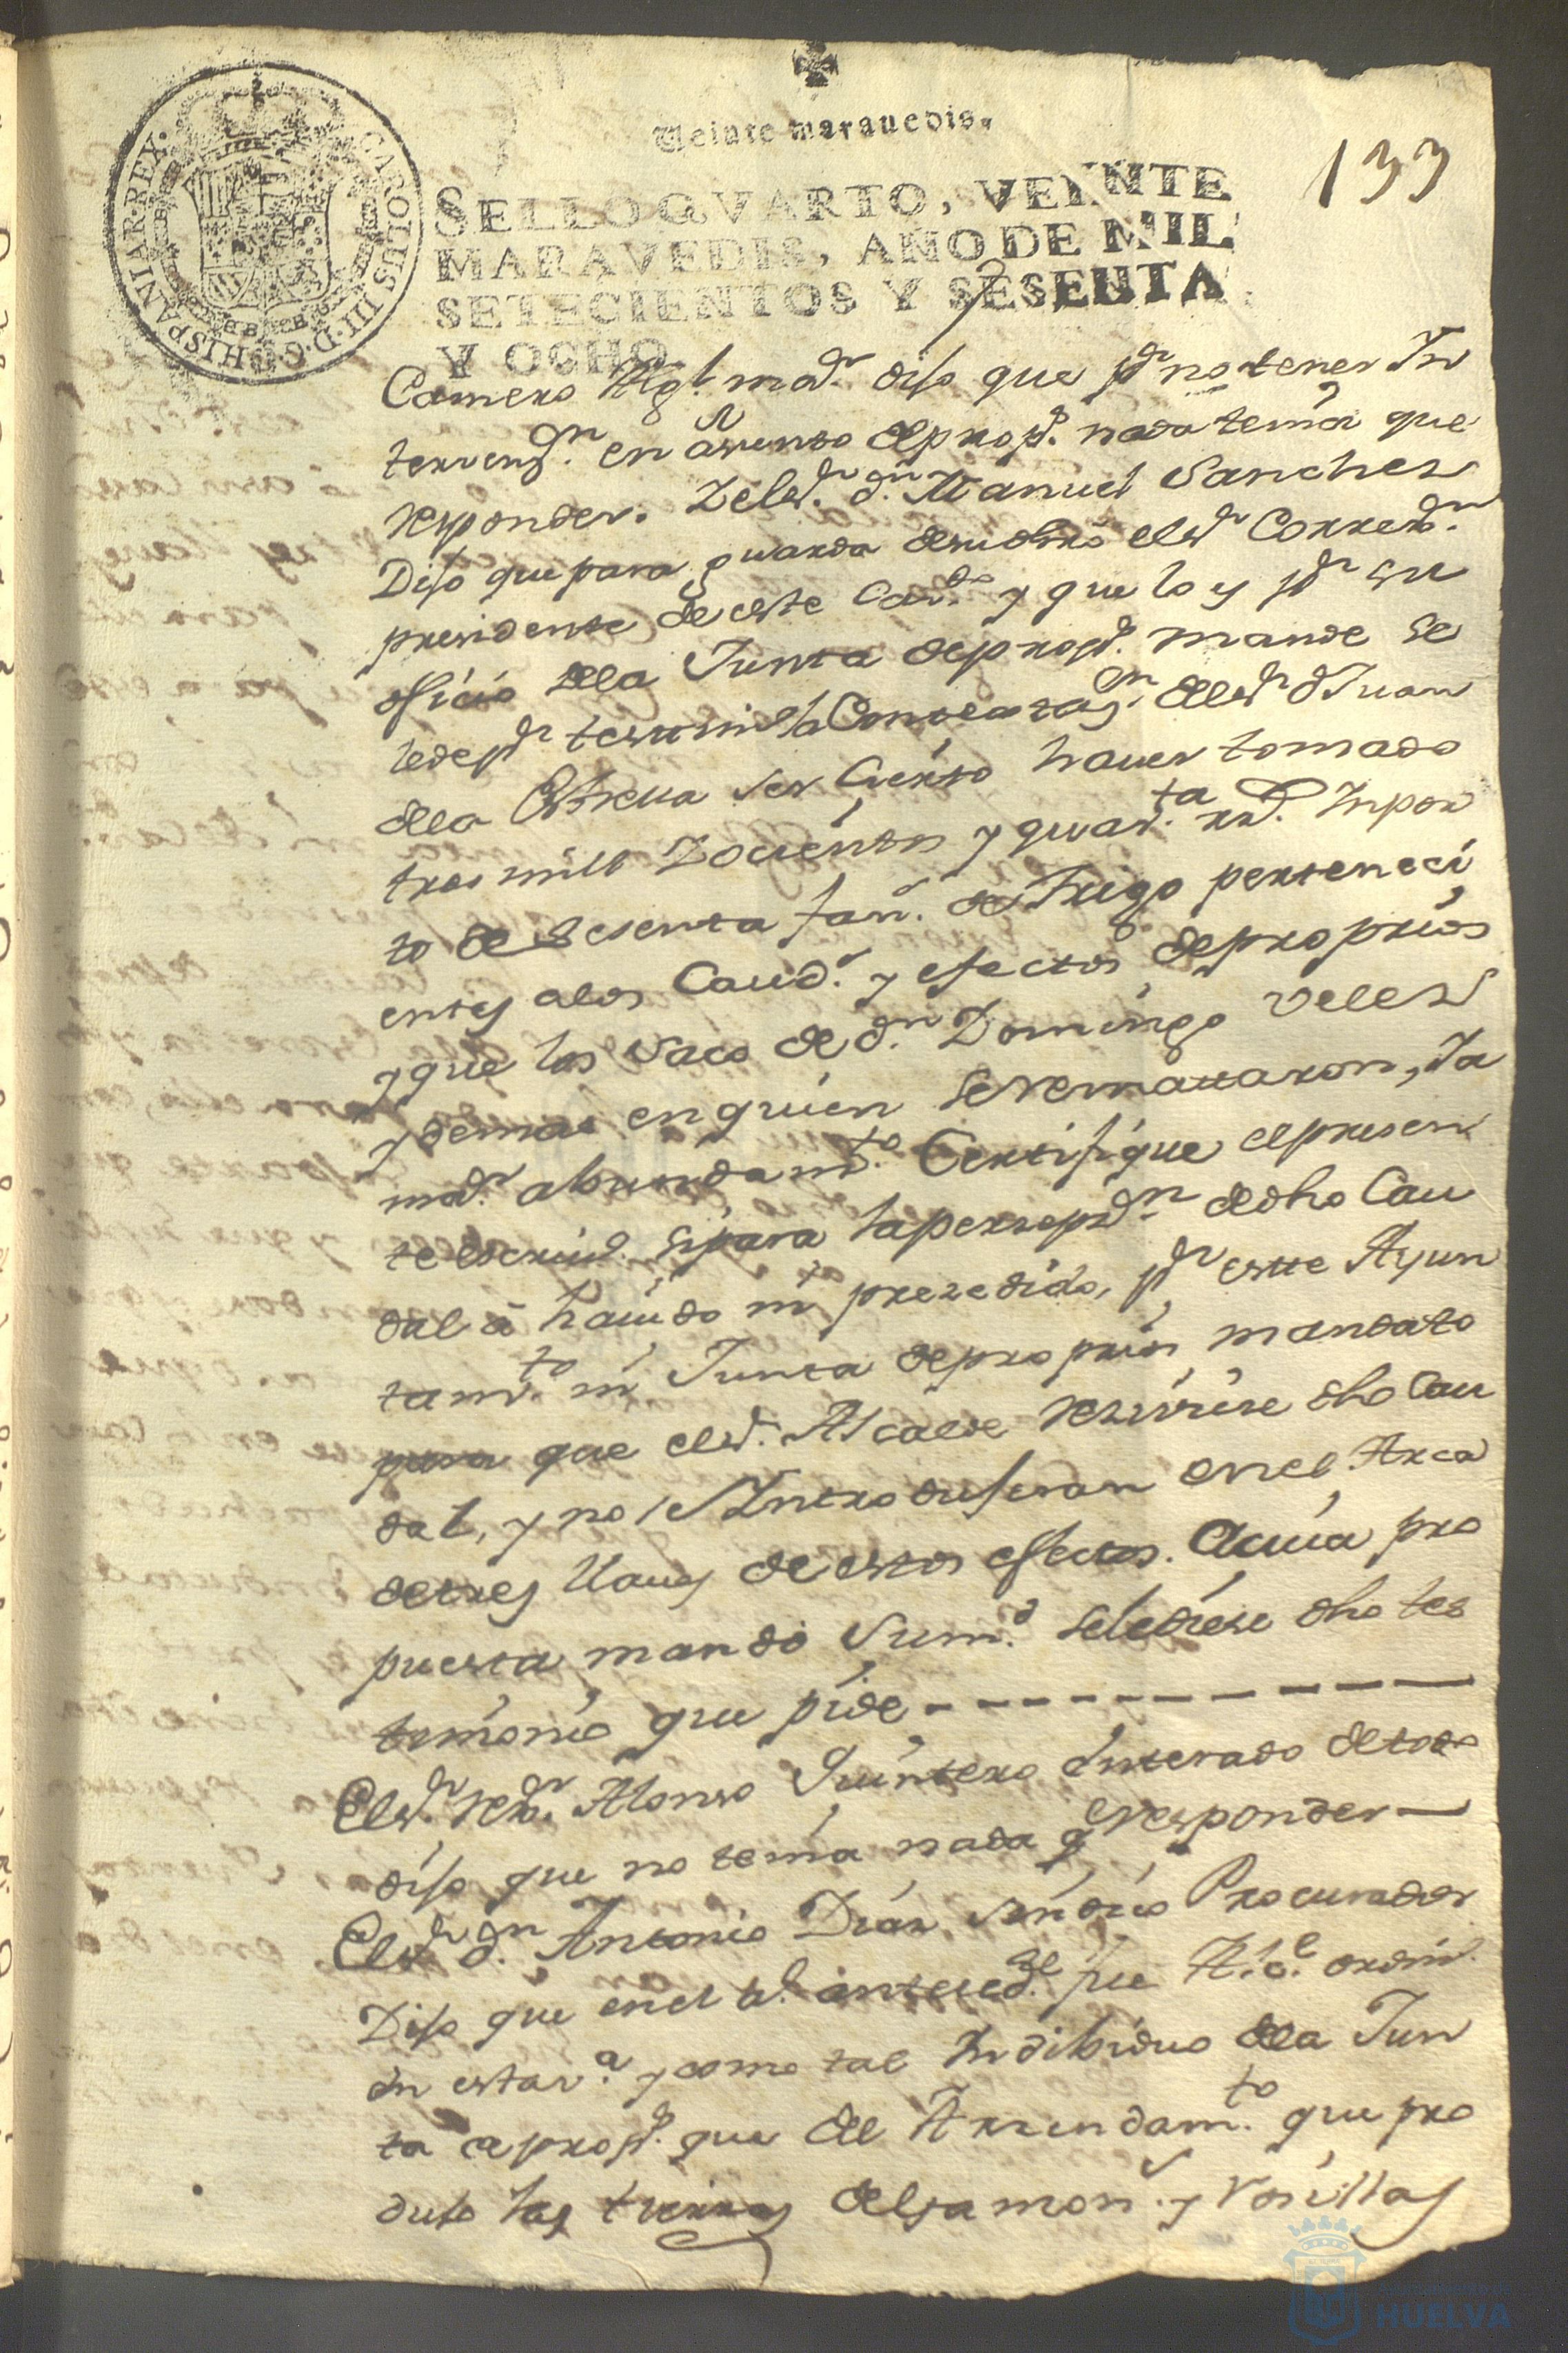 Veinte marauedis.
133
SELLO QVARTO, VEINTE
MARAVEDIS, AÑO DE MIL
SETECIENTOS Y SESENTA
Y OCHO.
CAROLUS III. D. G. HISPANIAR. REX.
Camero Alg.l mａ.r dijo que p.r no tener In
terven.n en asunto de prop.s nada tenía que
responder. Y el S.r d.n Manuel Sanches
Dijo que para guarda de su dro. el S.r Corred.r
presidente de este Cav.do y que lo es p.r su
oficio dela Junta de prop.s mande se
le de p.r testim.o la Contestaz.n del S.r d. Juan
dela Estrella ser Cierto haver tomado
tres mill Docientos y quar.ta r.s. Impor
to de Sesenta fan.s de Trigo perteneci
entes alos Caud.s y efectos de proprios
y que los Saco de d.n Domingo Veles
y demas en quien se remataron, Ya
ma.r abundam.to Certifique el presen
te escriv.o si para la persepz.n de dho Cau
dal â havido ni prezedido, p.r este Ayun
tam.to ni Junta de proprios mandato
para que el S.r Alcalde reziviese dho Cau
dal, y no se Introdujeran en el Arca
de tres llaves de estos efectos. A cuia pro
puesta mando Sum.d se le diese dho tes
timonio que pide
El S.r rex.r Alonso Quintero enterado de todo
dijo que no tenía nada q responder
El S.r d.n Antonio Dias Sindico Procurador
Dijo que en el a.o anteced.te fue Alc.e ordin.o
en esta v.a y como tal Indibiduo dela Jun
ta de prop.s que del Arrendam.to que pro
dujo las tierras del jamon y Vosillas
HUELVA